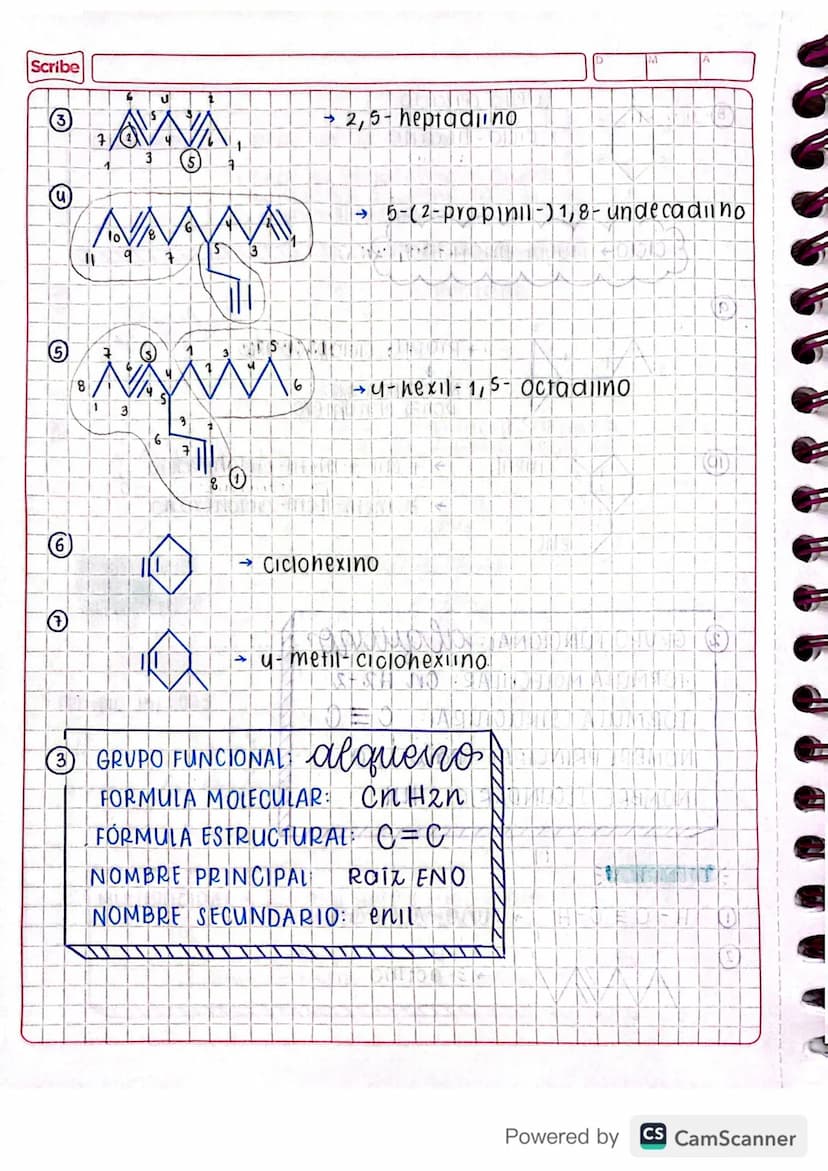 Scribe
D M A
③ 6 4 2
7 2 5 3 6 1
1 3 4 5 7
→ 2,5-heptadiino
④
→ 5-(2-propinil-)1,8-undecadiino
10 8 6 4 2 1
11 9 7 5 3
⑤ 7 5 1 3 5
8 6 4 2 4 6
1 3 4 5
→ 4-hexil-1,5-octadiino
3 2
6 7
8 1
⑥
→ ciclohexino
⑦
→ 4-metil-ciclohexiino
③ GRUPO FUNCIONAL: alqueno
FORMULA MOLECULAR: CnH2n
FÓRMULA ESTRUCTURAL: C=C
NOMBRE PRINCIPAL: Raíz ENO
NOMBRE SECUNDARIO: enil
Powered by CS CamScanner